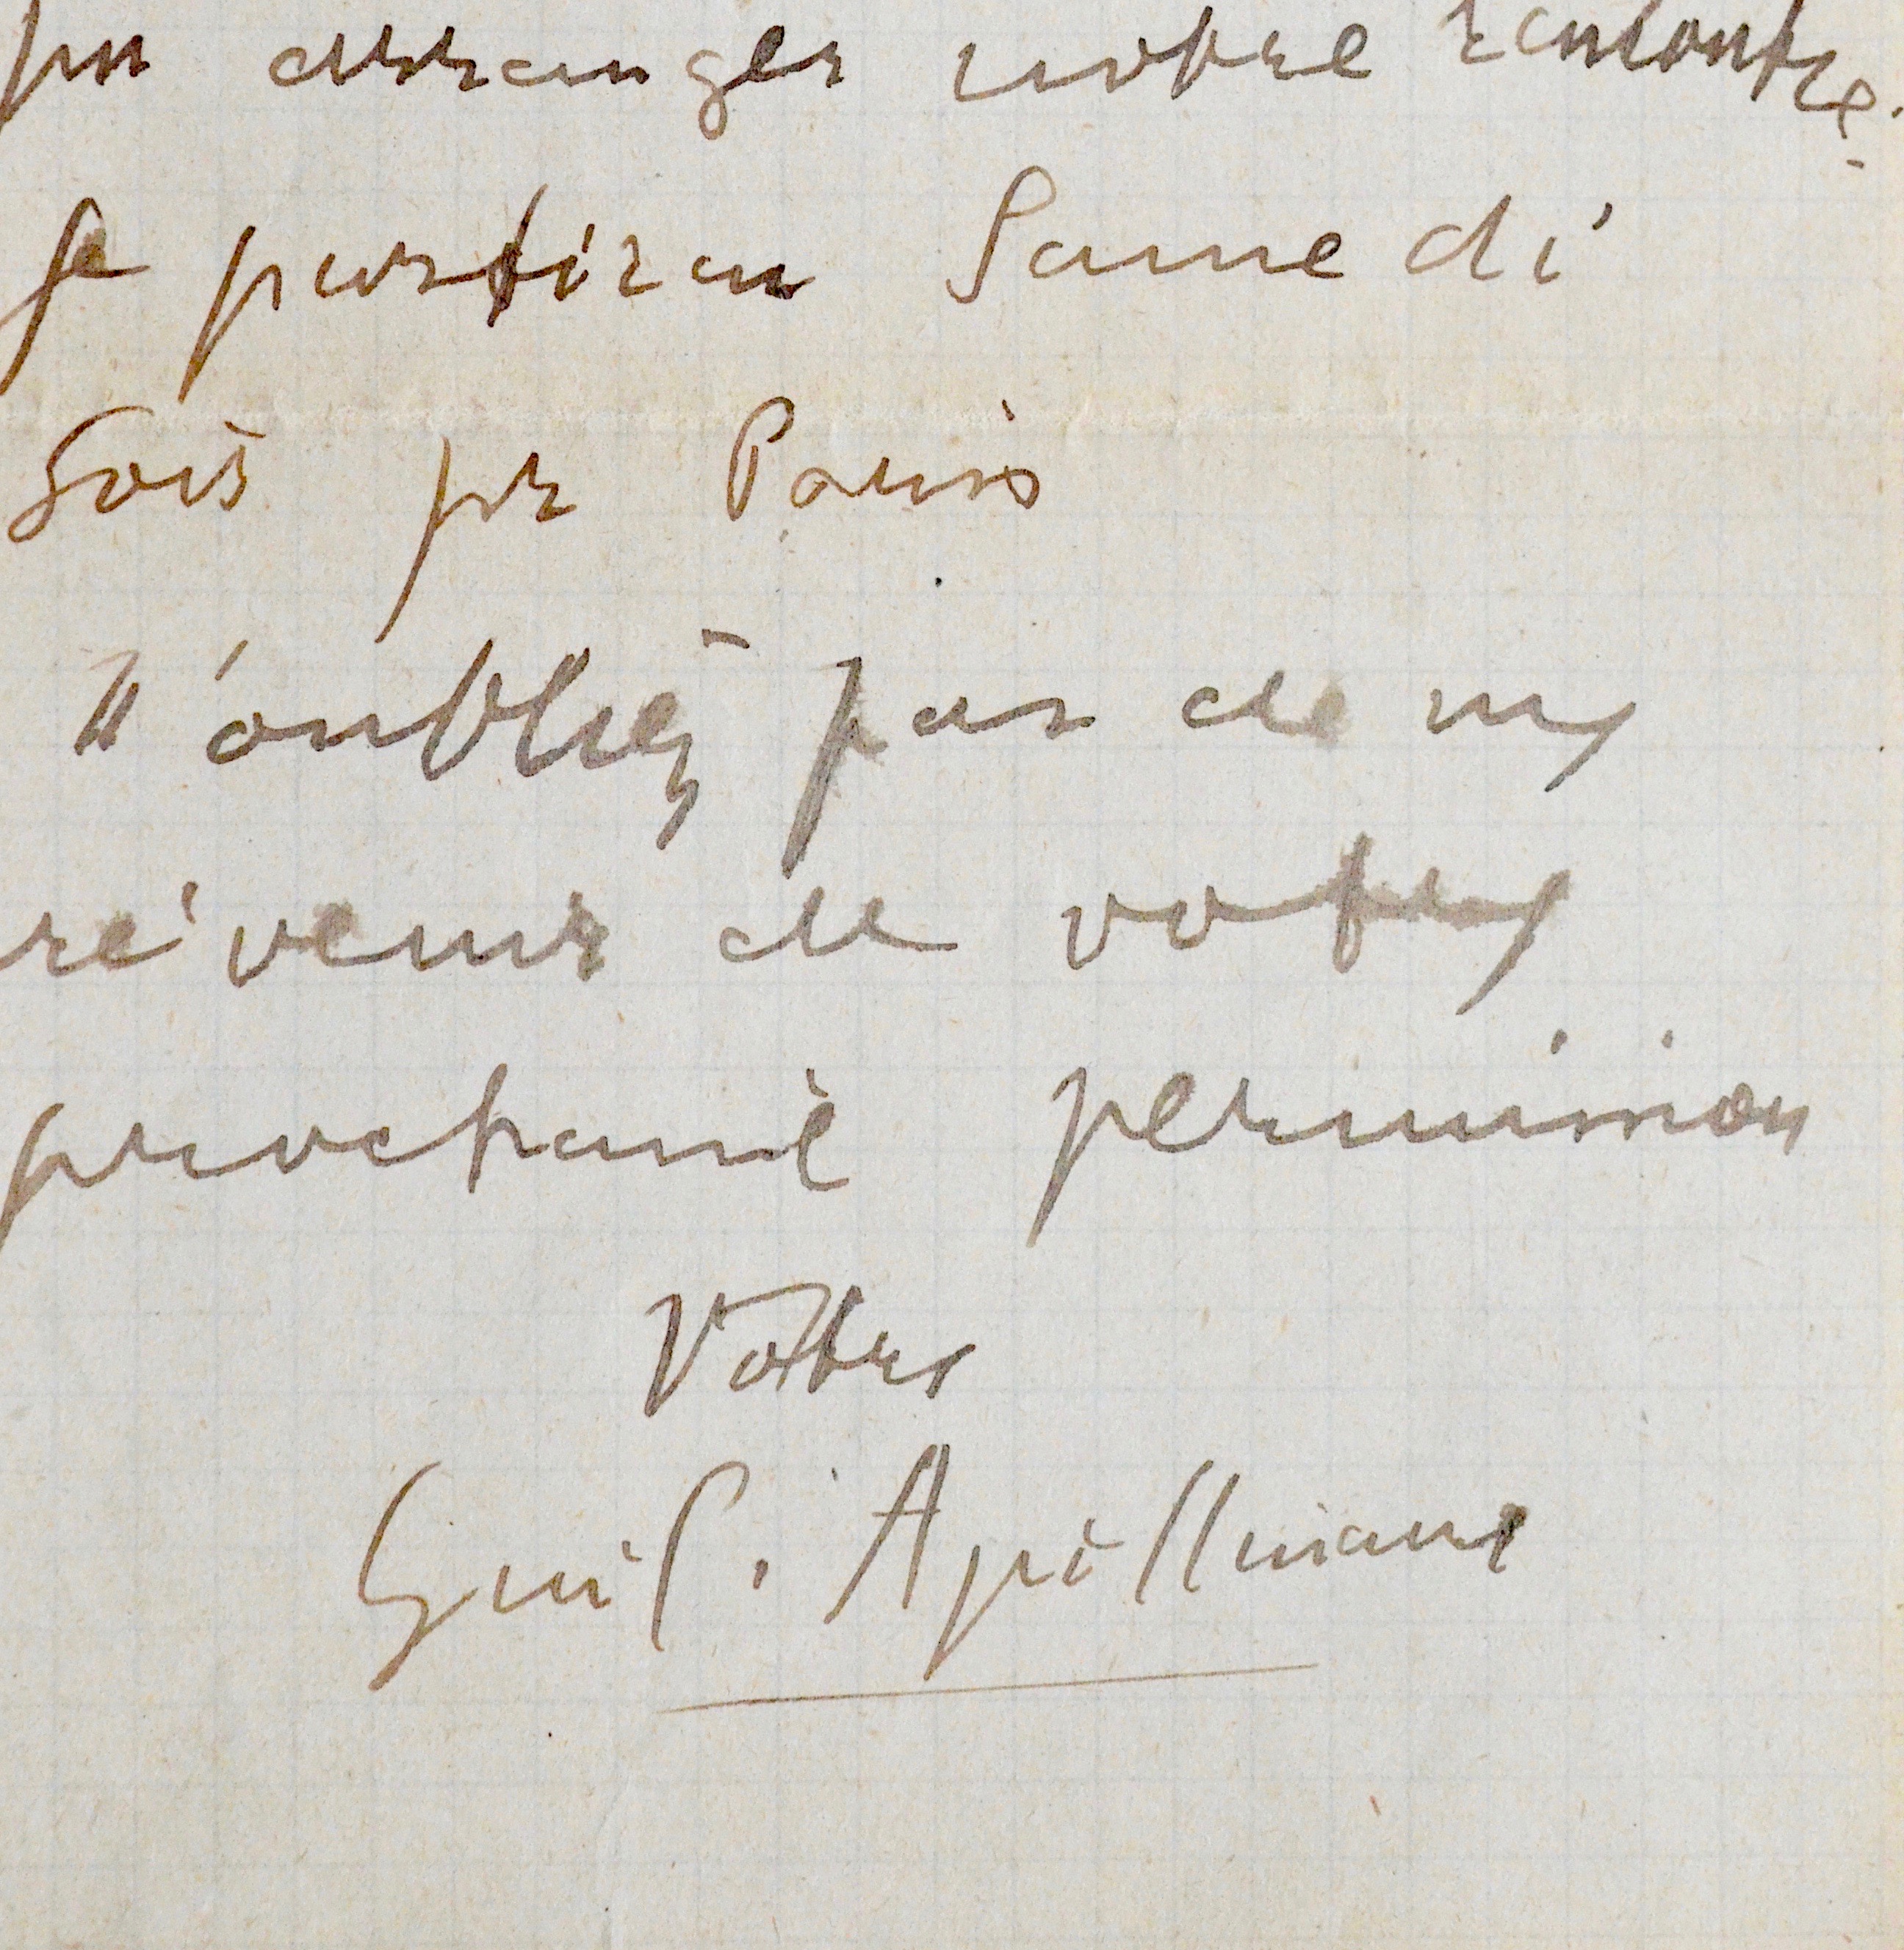 pu arranger notre rencontre.
Je partirai Samedi
Soir pr Paris
N'oubliez pas de me
prévenir de votre
prochaine permission
Votre
Guil. Apollinaire